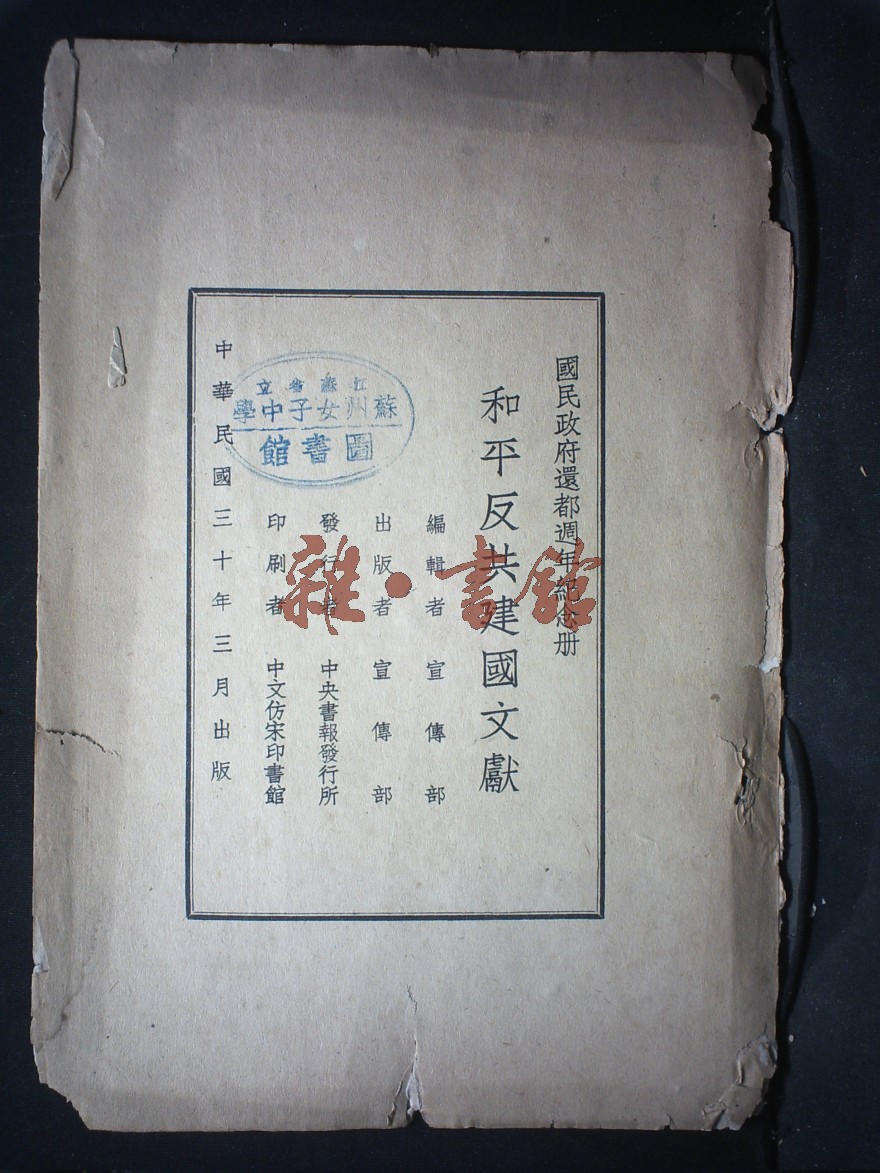 國民政府還都週年紀念册
和平反共建國文獻
編輯者 宣傳部
出版者 宣傳部
發行者 中央書報發行所
印刷者 中文仿宋印書館
中華民國三十年三月出版
江蘇省立
蘇州女子中學
圖書館
雜·書館